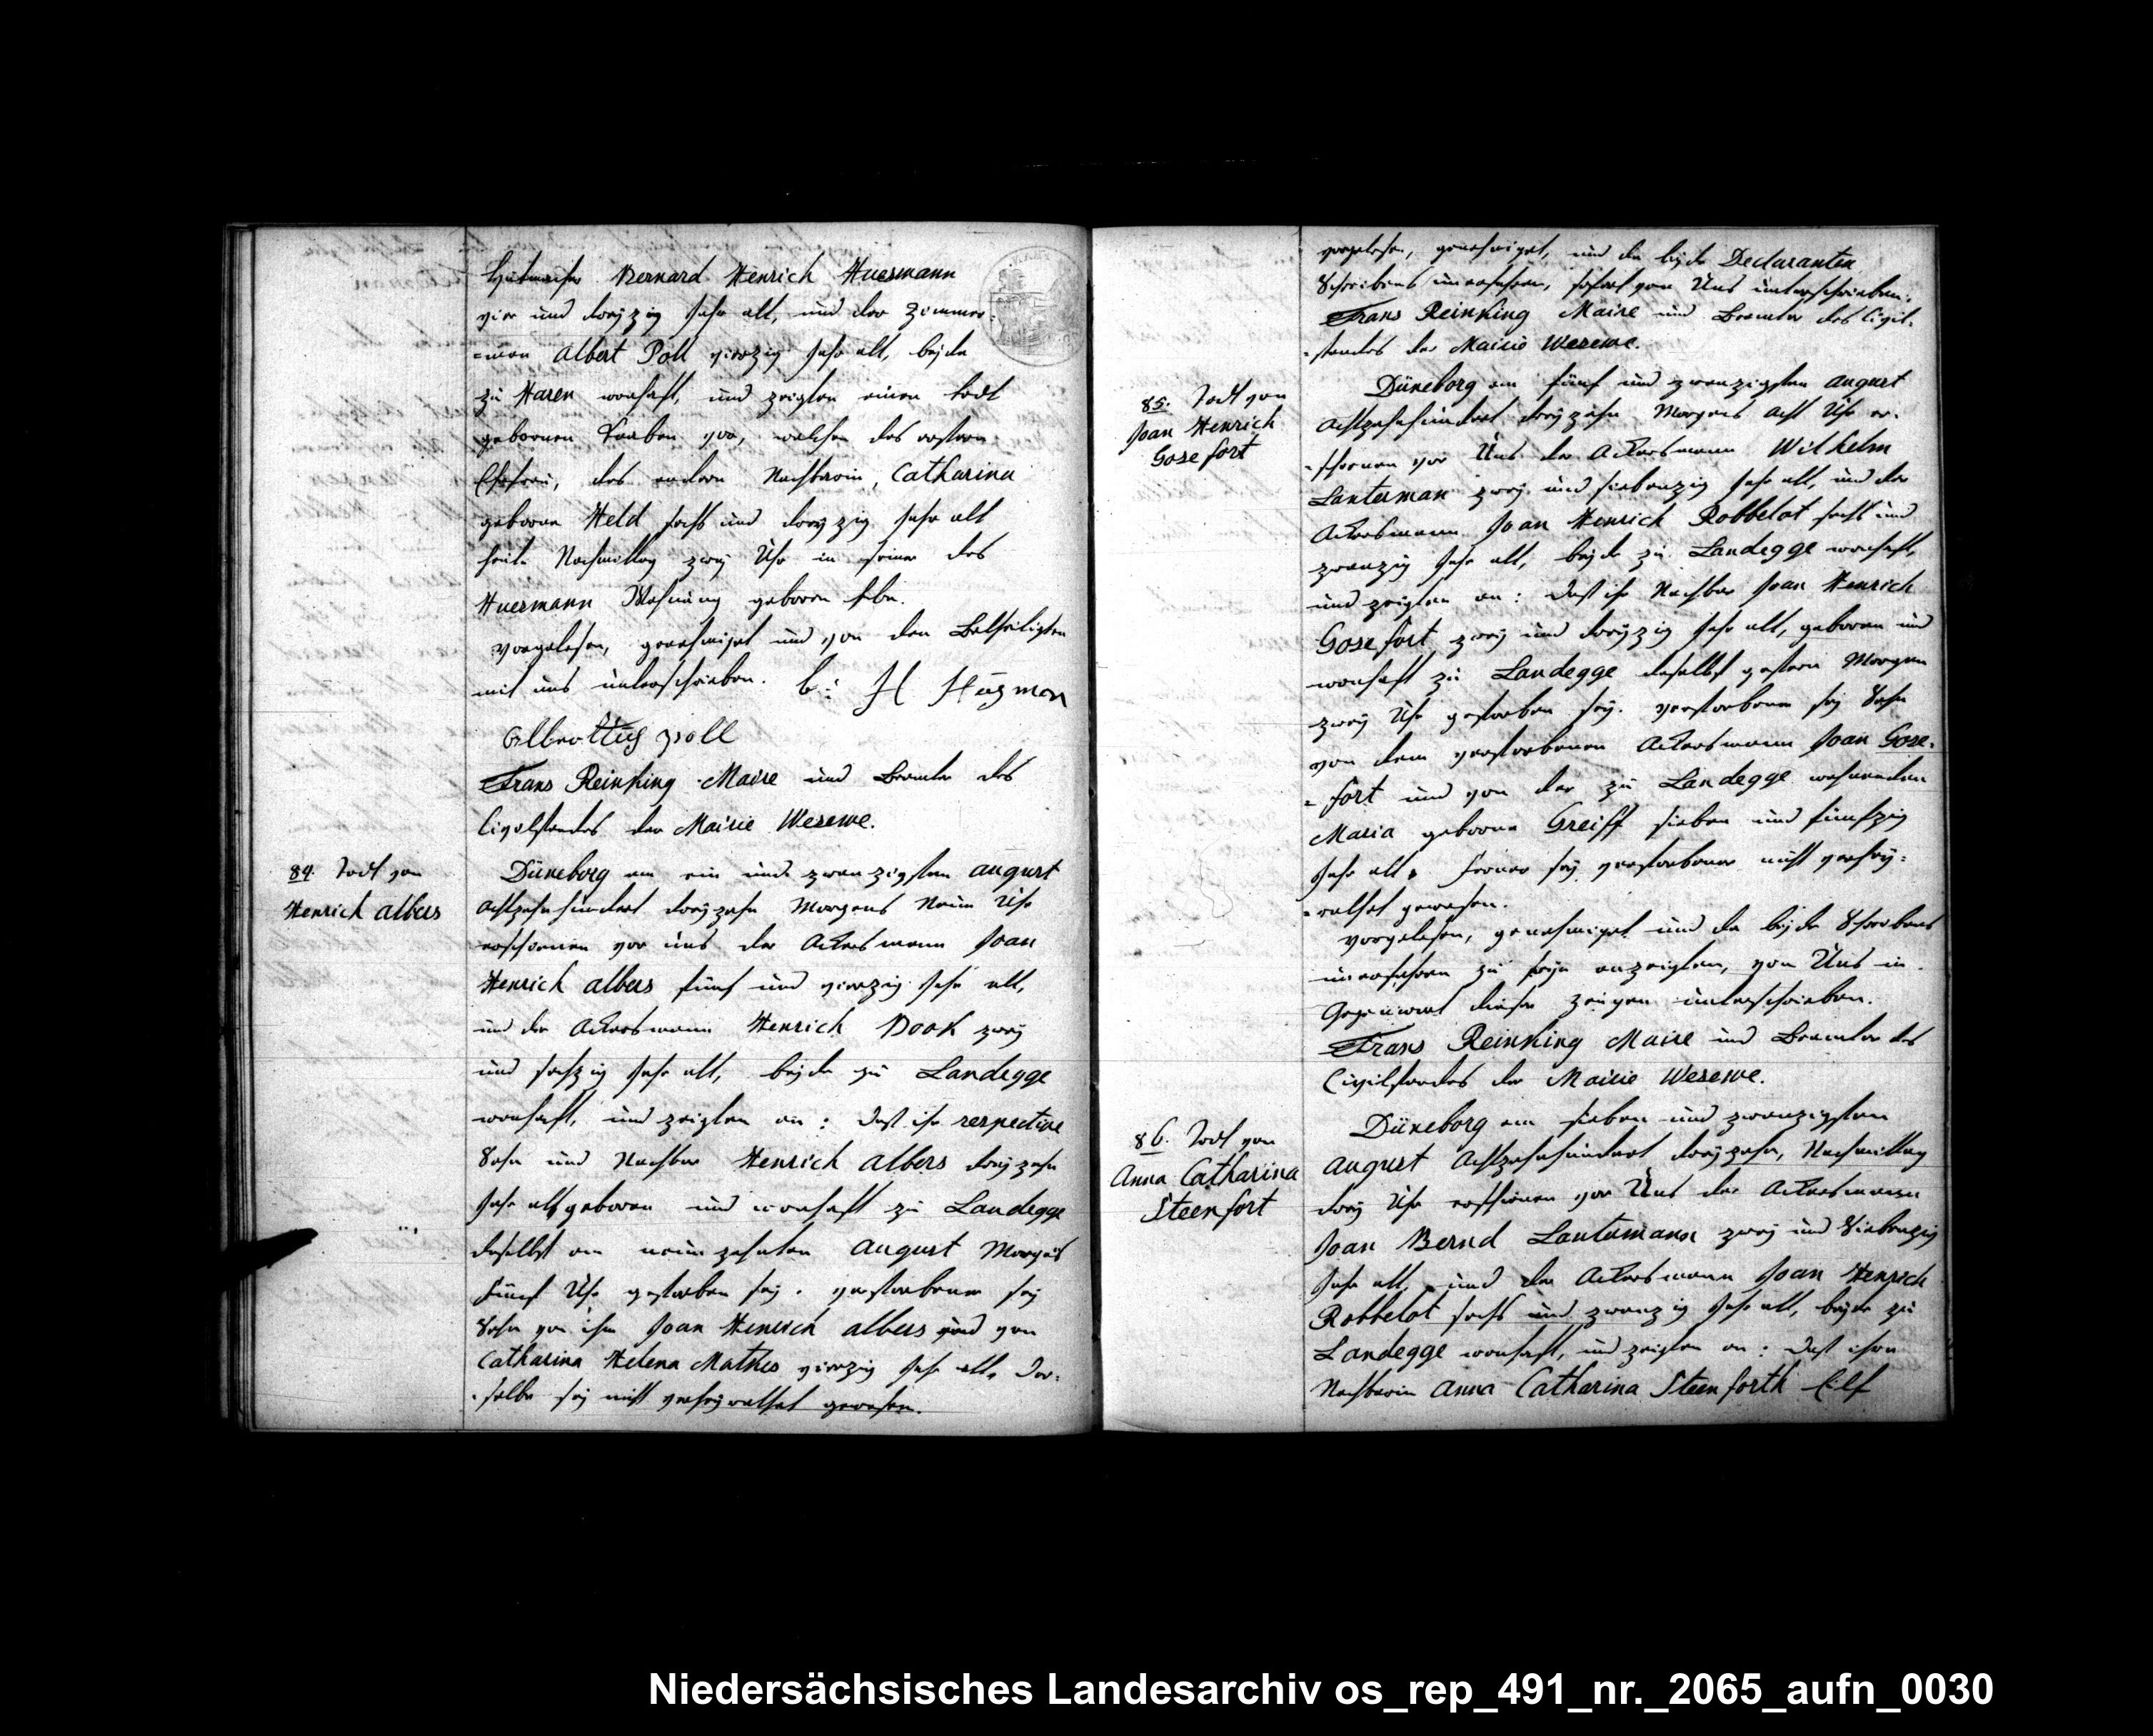 Hutmacher Bernard Henrich Huesmann
vier und dreyzig Jahr alt, und der Zimmer-
=man Albert Poll vierzig Jahr alt, beyde
zu Haren wonhaft, und zeigten einen todt
gebornen Knaben vor, welchen des erstern
Ehefrau, des andern Nachbarin, Catharina
geborne Held sechs und dreyzig Jahr alt
heute Nachmittag zwey Uhr in seiner des
Huesmann Wohnung geboren habe.
vorgelesen, genehmiget und von den Betheiligten
mit uns unterschrieben. B: H Hüsman
Albertus poll
Frans Reinking Maire und Beamter des
Civilstandes der Mairie Wesewe.
84. Todt von
Henrich Albers
Düneborg am ein und zwanzigsten August
Achtzehnhundert dreyzehn Morgens Neun Uhr
erschienen vor uns der Ackersmann Joan
Henrich Albers fünf und vierzig Jahr alt,
und der Ackersmann Henrich Dook zwey
und sechzig Jahr alt, beyde zu Landegge
wonhaft, und zeigten an: daß ihr respective
Sohn und Nachbar Henrich Albers dreyzehn
Jahr alt geboren und wonhaft zu Landegge
daselbst am neunzehnten August Morgens
fünf Uhr gestorben sey. verstorbener sey
Sohn von ihm Joan Henrich Albers und von
Catharina Helena Mathes vierzig Jahr alt, der-
=selbe sey nicht verheyrathet gewesen.
vorgelesen, genehmiget, und da beyde Declaranten
Schreibens unerfahren, sofort von Uns unterschrieben.
Frans Reinking Maire und Beamter des Civil-
=standes der Mairie Wesewe.
85. Todt von
Joan Henrich
Gosefort
Düneborg am fünf und zwanzigsten August
Achtzehnhundert dreyzehn Morgens acht Uhr er-
=schienen vor Uns der Ackersmann Wilhelm
Lanterman zwey und siebenzig Jahr alt, und der
Ackersmann Joan Henrich Robbelot sechs und
zwanzig Jahr alt, beyde zu Landegge wonhaft,
und zeigten an: daß ihr Nachbar Joan Henrich
Gosefort zwey und dreyzig Jahr alt, geboren und
wonhaft zu Landegge daselbst gestern Morgen
zwey Uhr gestorben sey. verstorbener sey Sohn
von dem verstorbenen Ackersmann Joan Gose-
=fort und von der zu Landegge wohnenden
Maria geborne Greiff sieben und fünfzig
Jahr alt, ferner sey verstorbener nicht verhey-
=rathet gewesen.
vorgelesen, genehmiget und da beyde Schreibens
unerfahren zu seyn anzeigten, von Uns in
Gegenwart dieser Zeugen unterschrieben.
Frans Reinking Maire und Beamter des
Civilstandes der Mairie Wesewe.
86. Todt von
Anna Catharina
Steenfort
Düneborg am sieben und zwanzigsten
August Achtzehnhundert dreyzehn, Nachmittag
drey Uhr erschienen vor Uns der Ackersmann
Joan Bernd Lantermann zwey und Siebenzig
Jahr alt, und der Ackersmann Joan Henrich
Robbelot sechs und zwanzig Jahr alt, beyde zu
Landegge wonhaft, und zeigten an: daß ihre
Nachbarin Anna Catharina Steenforth Eilf
Niedersächsisches Landesarchiv os_rep_491_nr._2065_aufn_0030